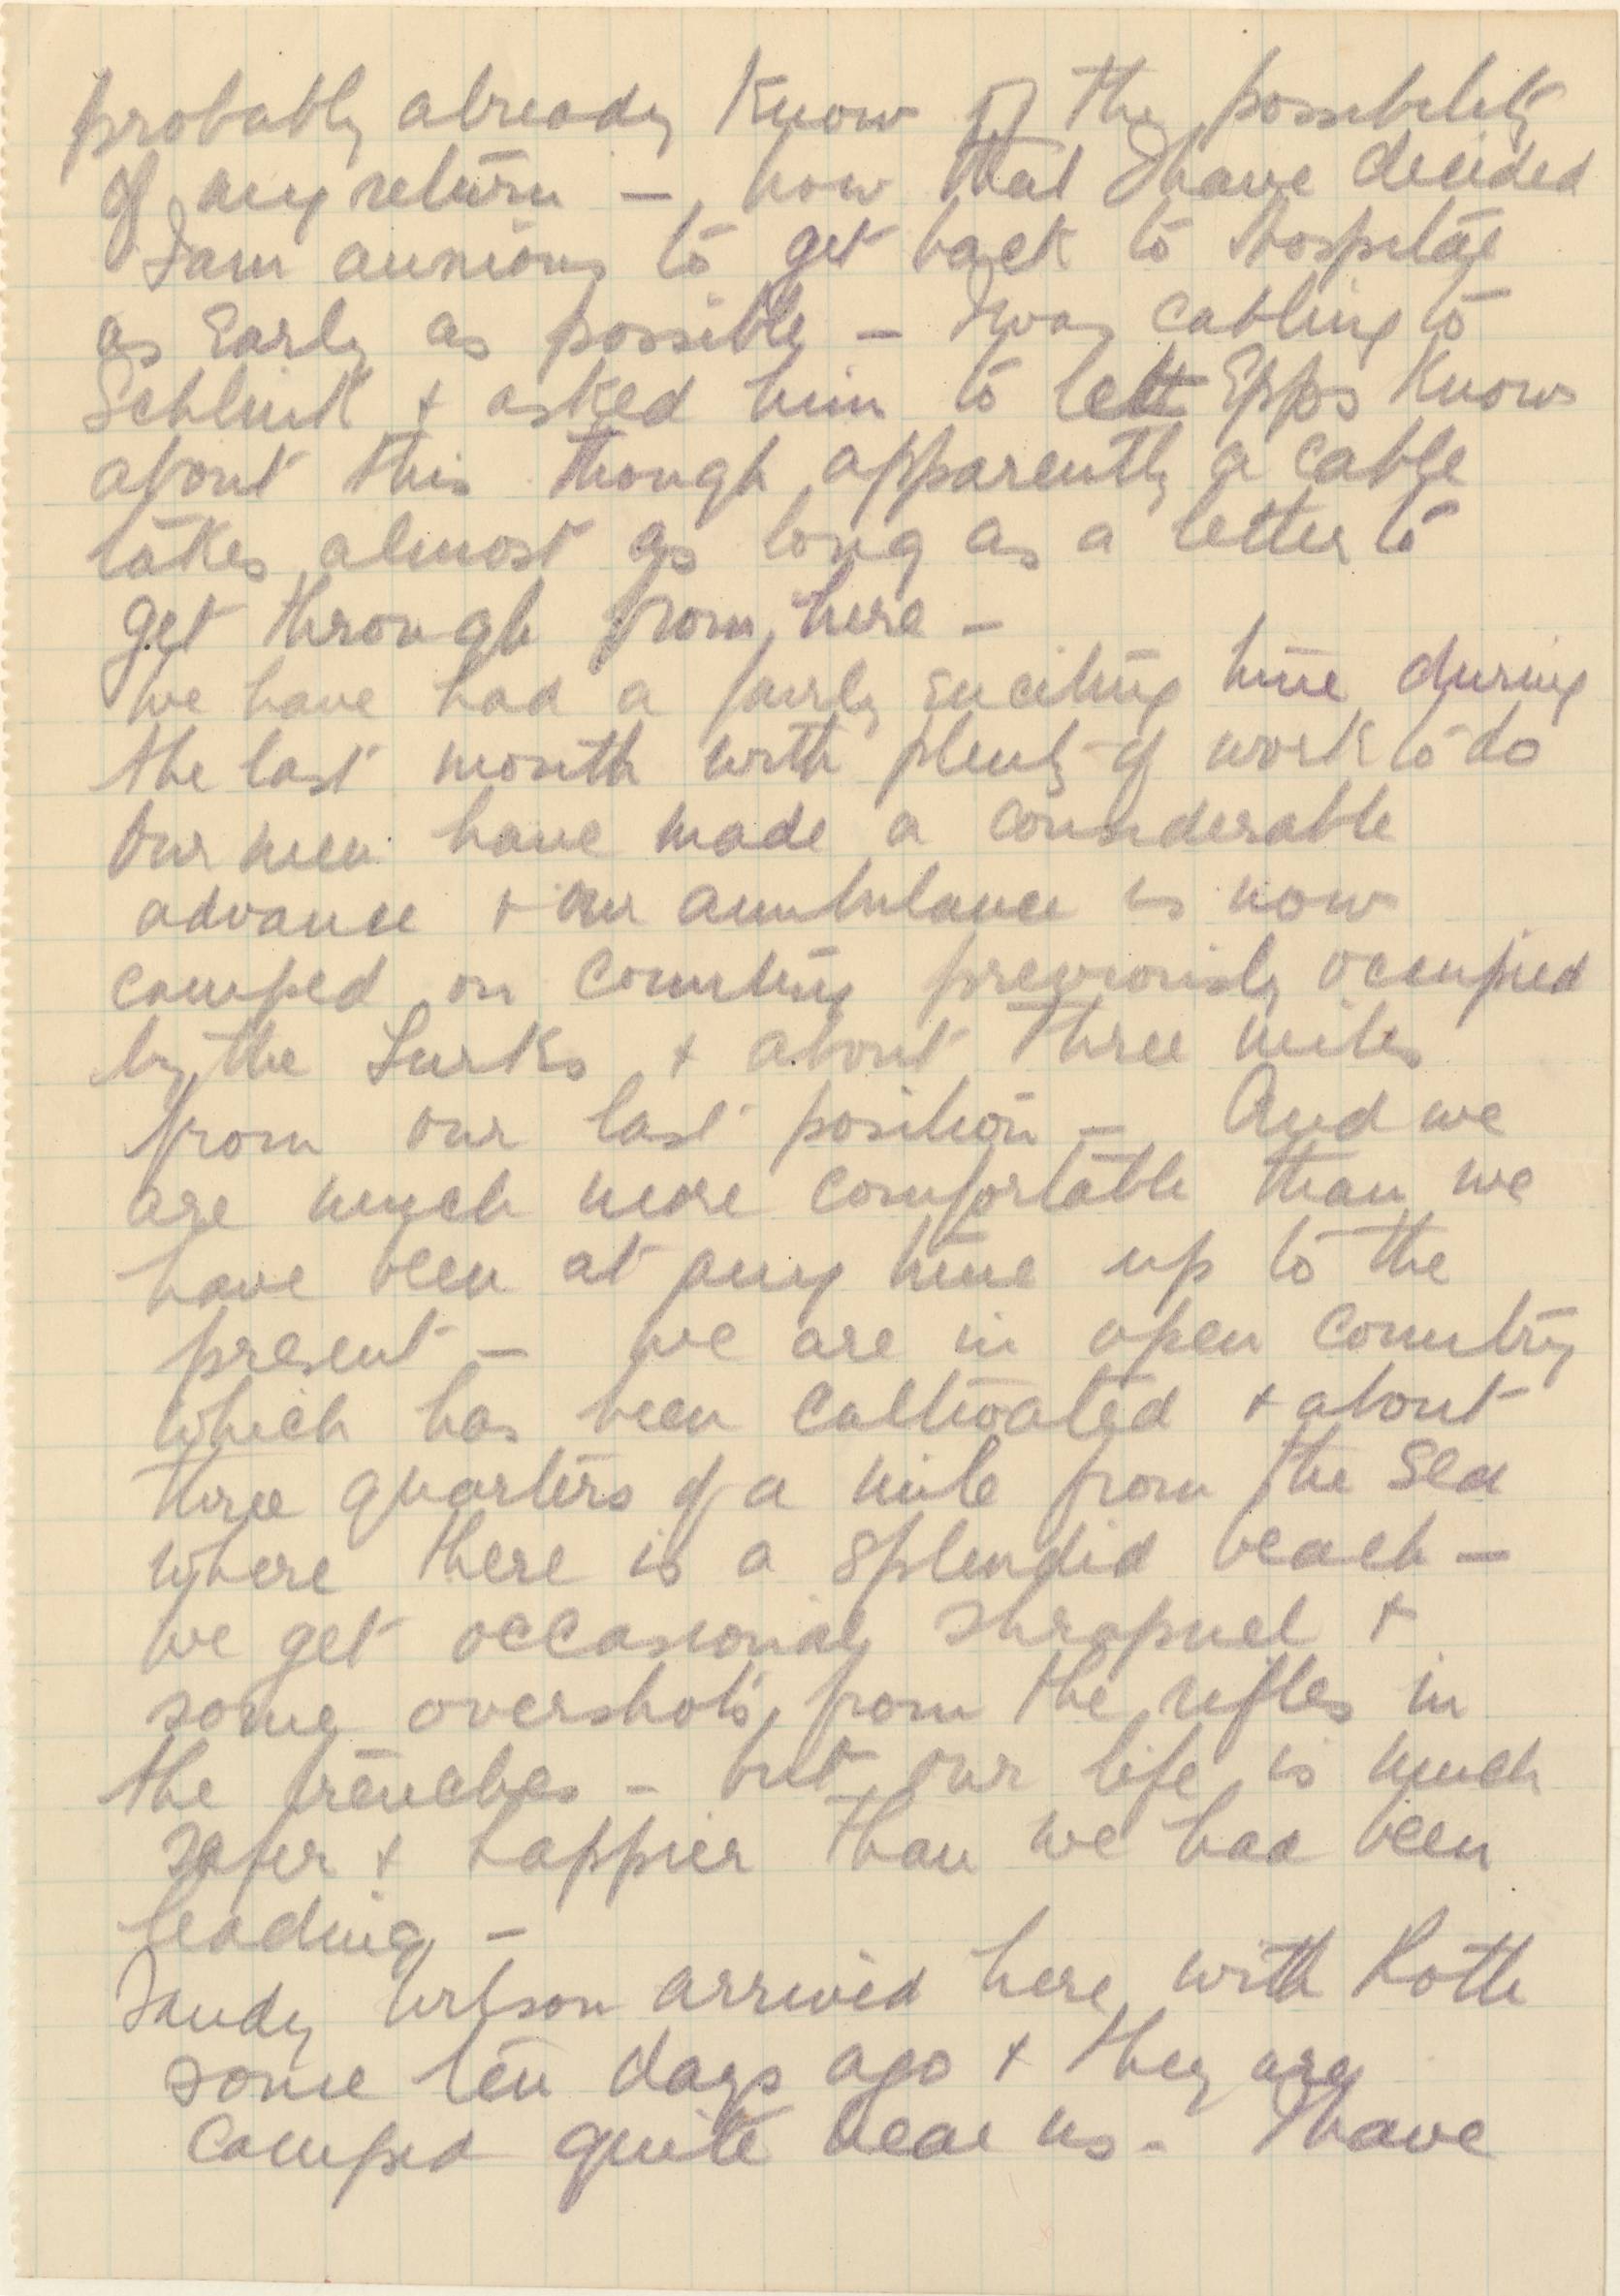 probably already know of the possibility
of my return — now that I have decided
I am anxious to get back to Hospital
as Early as possible — I was cabling to
Schlink + asked him to let Epps Know
about this though apparently a cable
takes almost as long as a letter to
get through from here —
We have had a fairly exciting time during
the last month with plenty of work to do
Our men have made a considerable
advance + our ambulance is now
camped on country previously occupied
by the Turks + about three miles
from our last position — And we
are much more comfortable than we
have been at any time up to the
present — we are in open country
which has been cultivated + about
three quarters of a mile from the sea
where there is a splendid beach —
we get occasional shrapnel +
some overshots from the rifles in
the trenches — but our life is much
safer + happier than we had been
leading —
Sandy Wilson arrived here with Roth
some ten days ago + they are
camped quite near us - I have